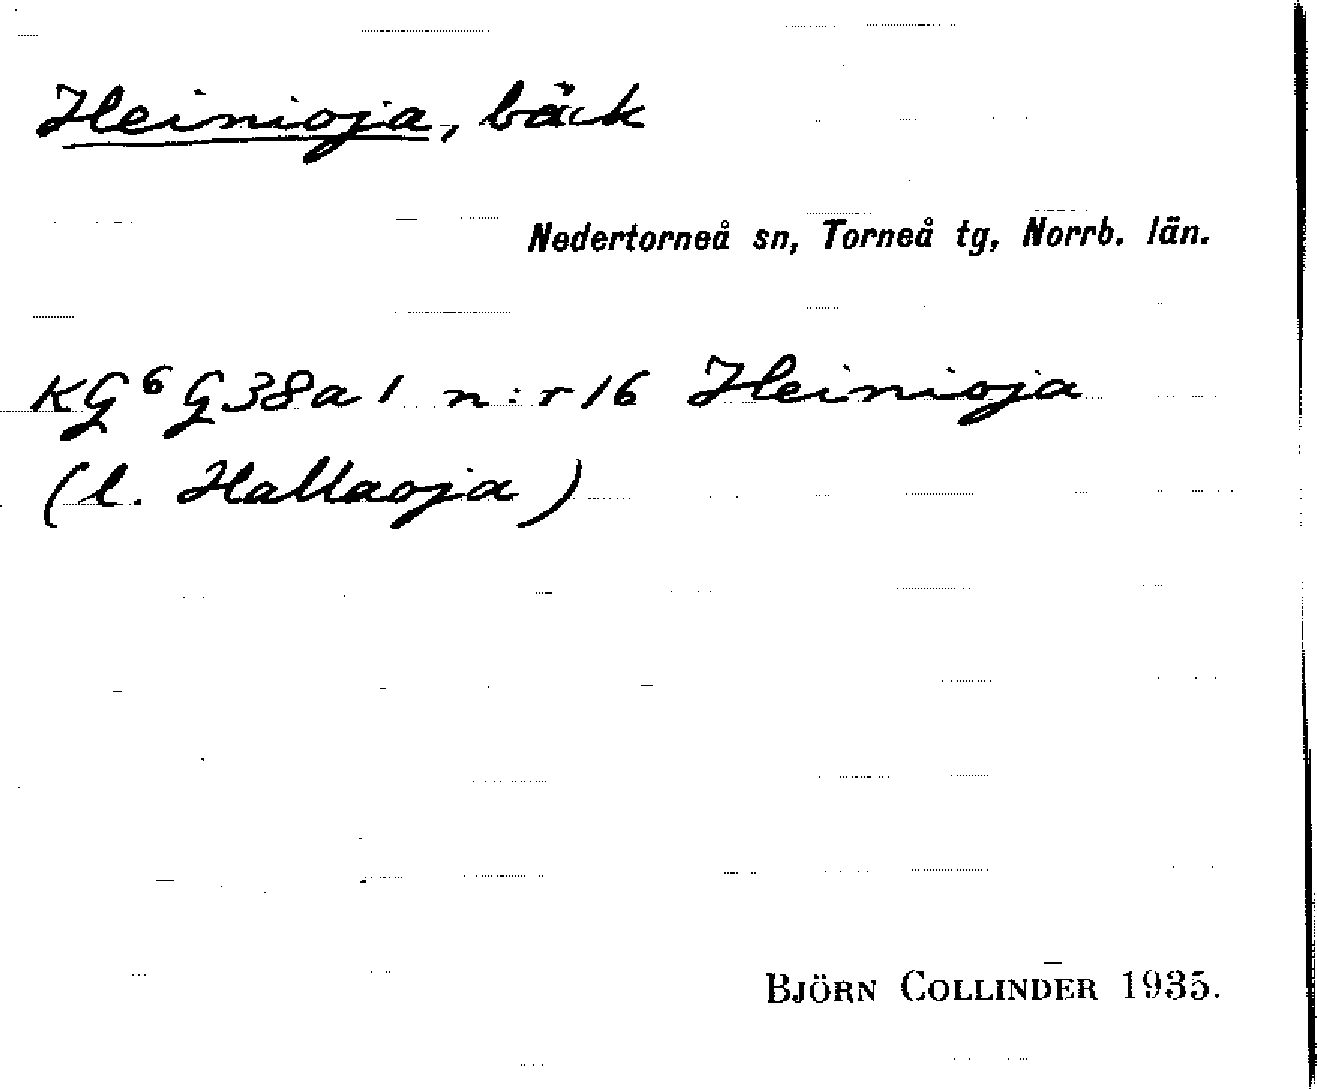 Heinioja, bäck
Nedertorneå sn, Torneå tg, Norrb. län.
KG⁶ G38a1 n:r 16 Heinioja
(l. Hallaoja)
BJÖRN COLLINDER 1935.